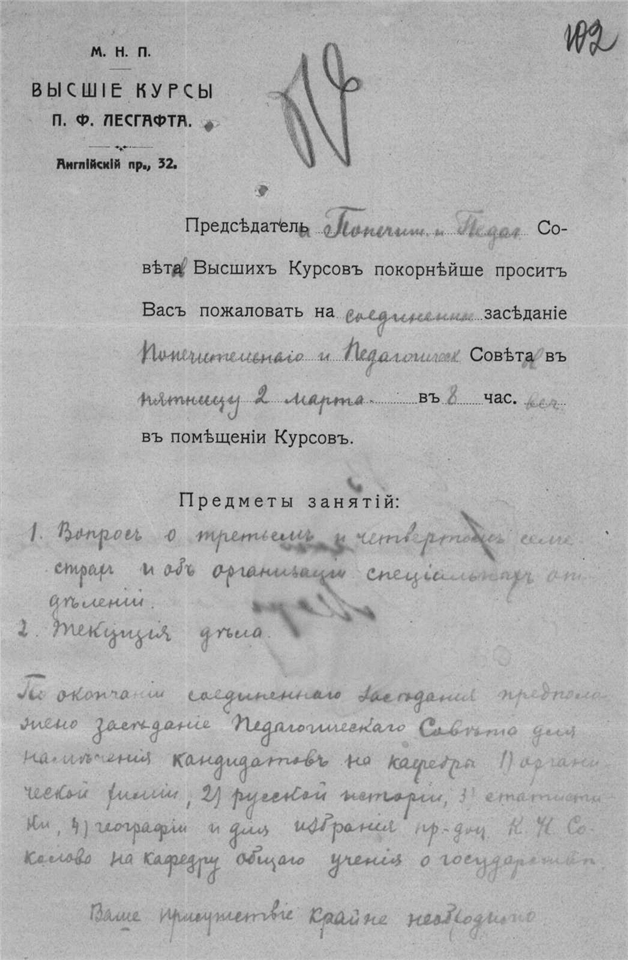 102
М. Н. П.
ВЫСШІЕ КУРСЫ
П. Ф. ЛЕСГАФТА.
Англійскій пр., 32.
Предсѣдатель Попечит. и Педаг Со-
вѣта Высшихъ Курсовъ покорнѣйше проситъ
Васъ пожаловать на соединенное засѣданіе
Попечительнаго и Педагогическ Совѣта въ
пятницу 2 марта. въ 8 час. веч
въ помѣщеніи Курсовъ.
Предметы занятій:
1. Вопросъ о третьемъ и четвертомъ семе
страх и объ организаціи спеціальныхъ от
дѣленій.
2. Текущія дѣла.
По окончаніи соединеннаго засѣданія предполо
жено засѣданіе Педагогическаго Совѣта для
намѣченія кандидатовъ на кафедры 1) органи
ческой химіи, 2) русской исторіи, 3) статисти
ки, 4) географіи и для избранія пр-доц. К. Н. Со
колова на кафедру общаго ученія о государствѣ.
Ваше присутствіе крайне необходимо